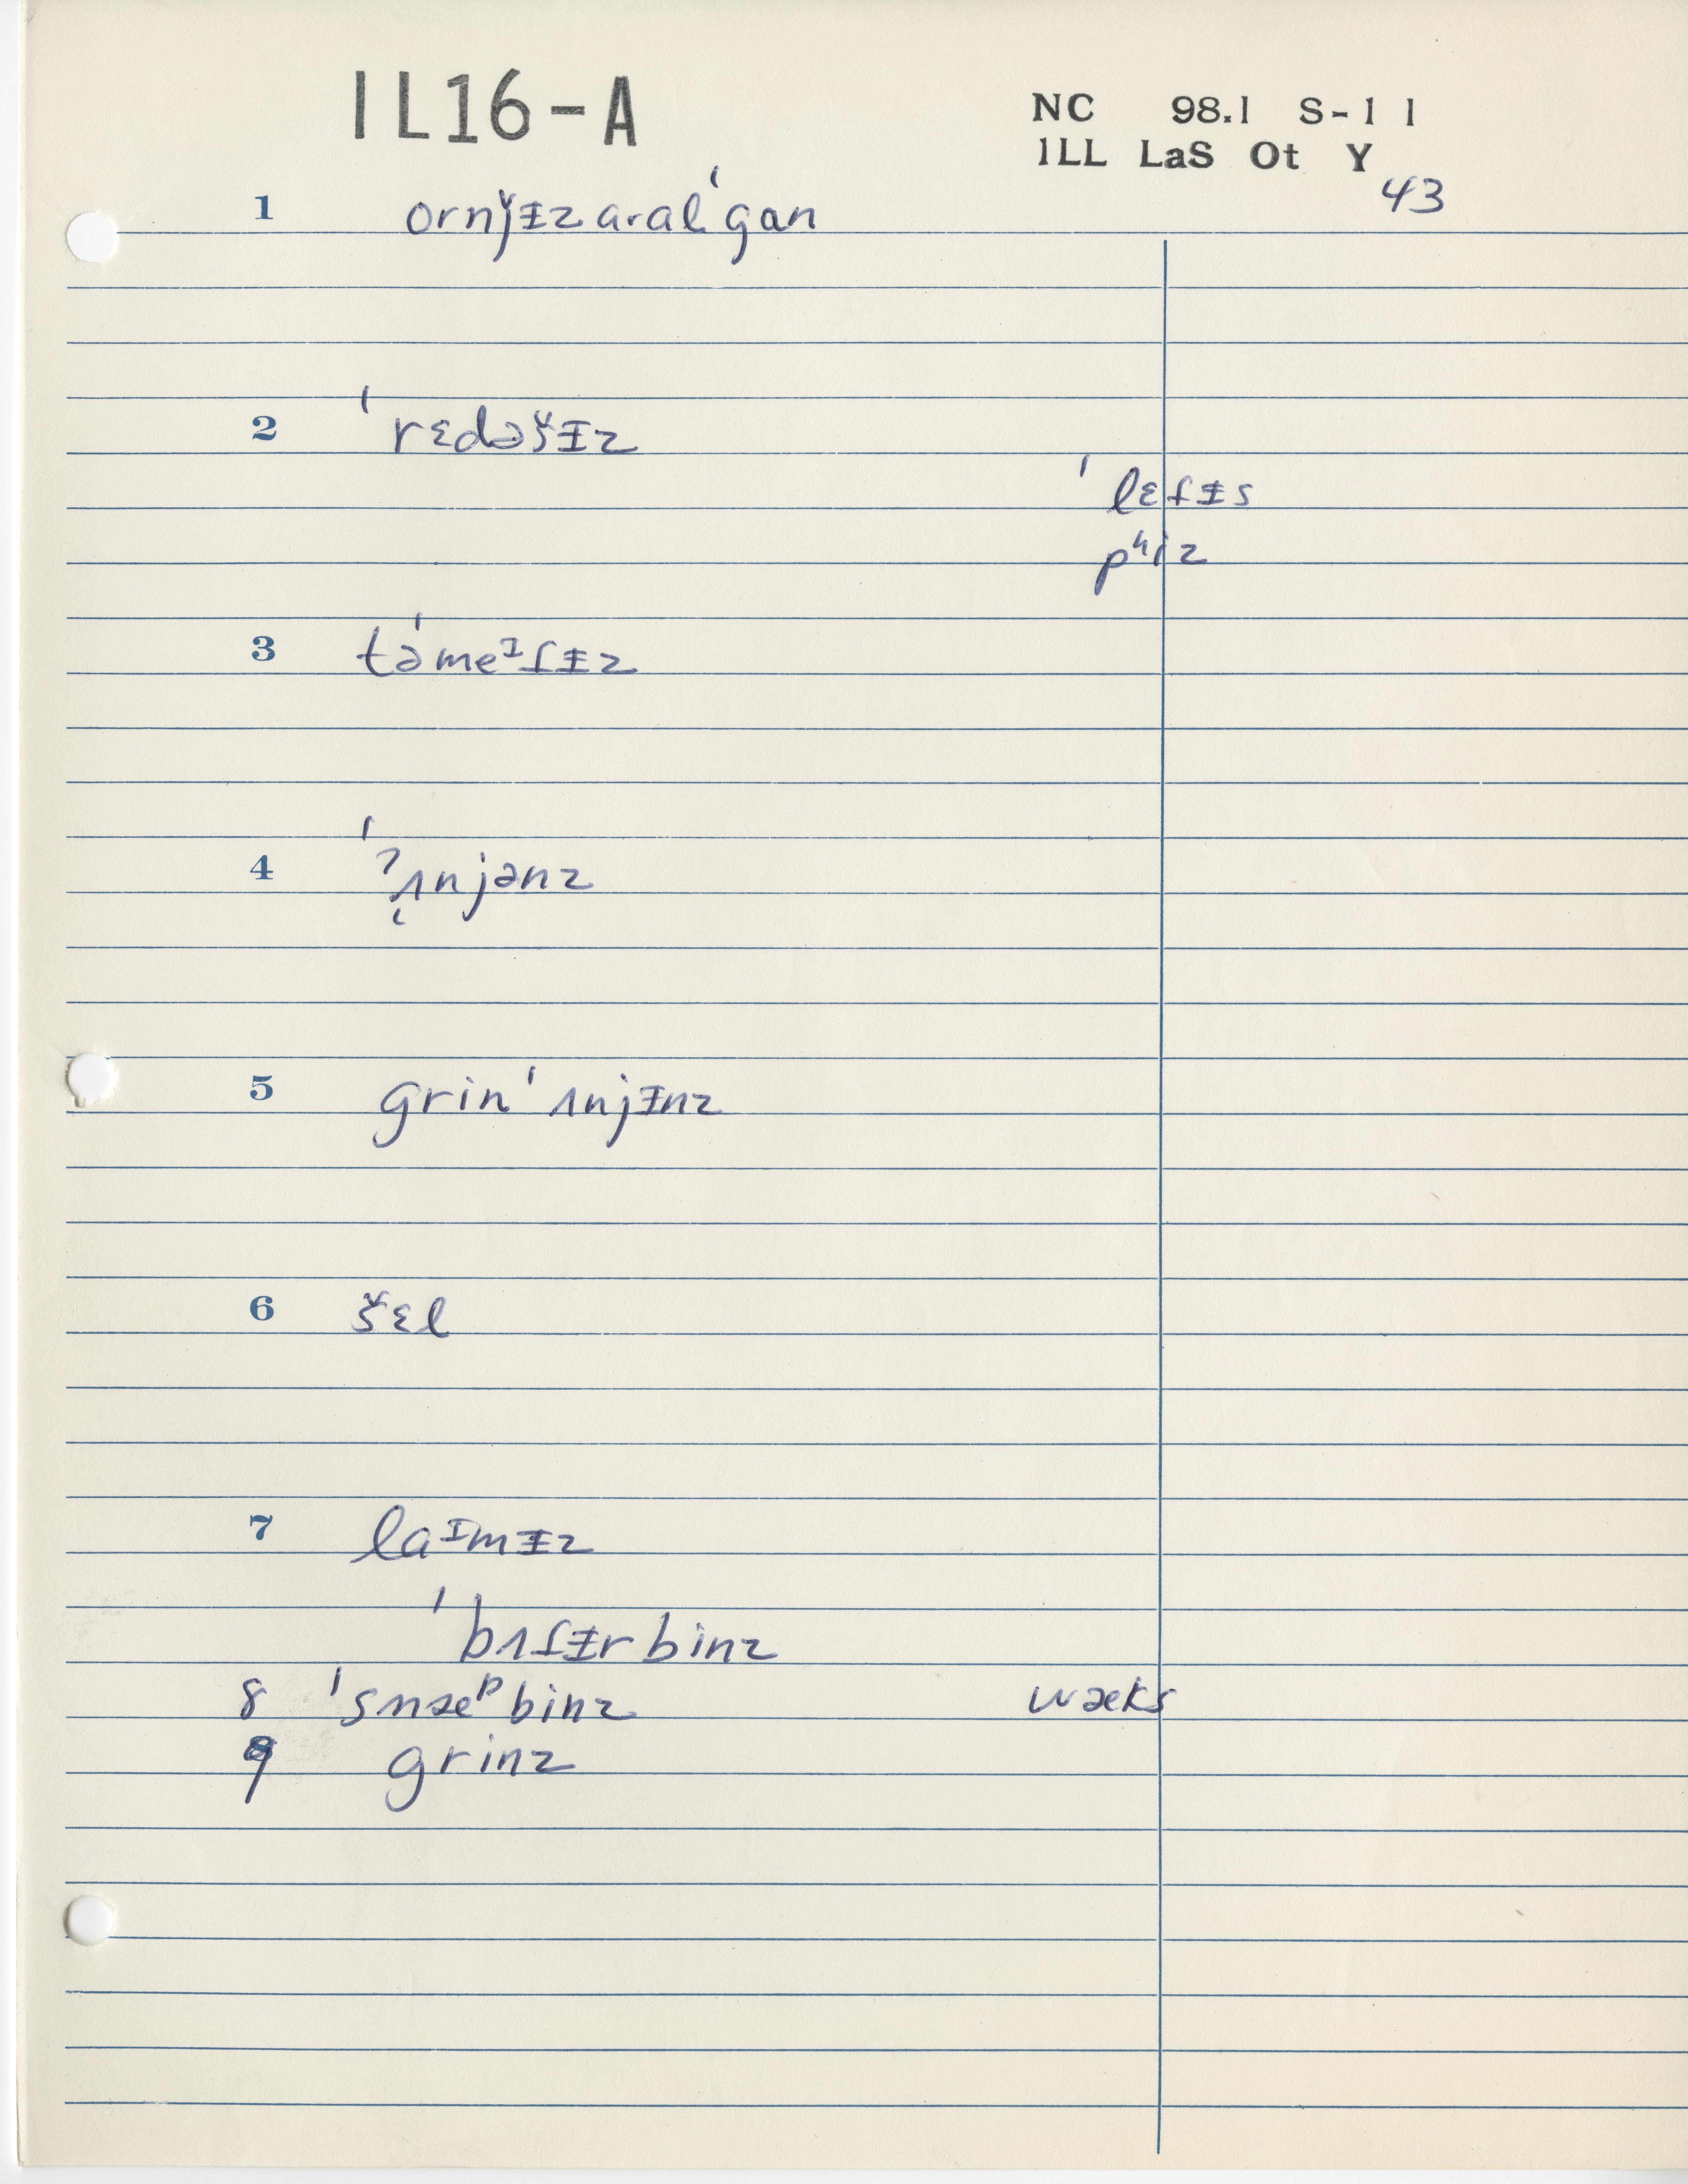 IL16-A
NC 98.1 S-11
1LL LaS Ot Y
43
1 ornǰᵻz a·r al ˈgɑn
2 ˈrɛdəšᵻz
ˈlɛtᵻs
pʰiz
3 təˈmeᶦɾᵻz
4 ˈʔʌ̨njənz
5 grin ˈʌnjᵻnz
6 šɛl
7 laɪmᵻz
ˈbʌɾᵻr binz
8 ˈsnæᵖbinz wæks
9 grinz